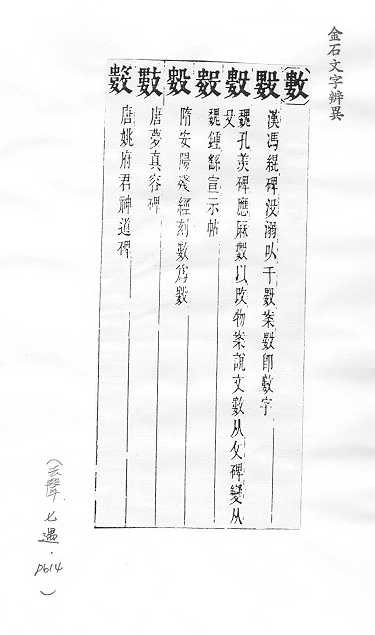 金石文字辨異
數
漢馮緄碑没溺以千數案數即數字
魏孔羨碑應厤數以改物案說文數从攵碑變从
殳
魏鍾繇宣示帖
隋安陽殘經刻數爲數
唐夢真容碑
唐姚府君神道碑
(去聲七遇.
P614)